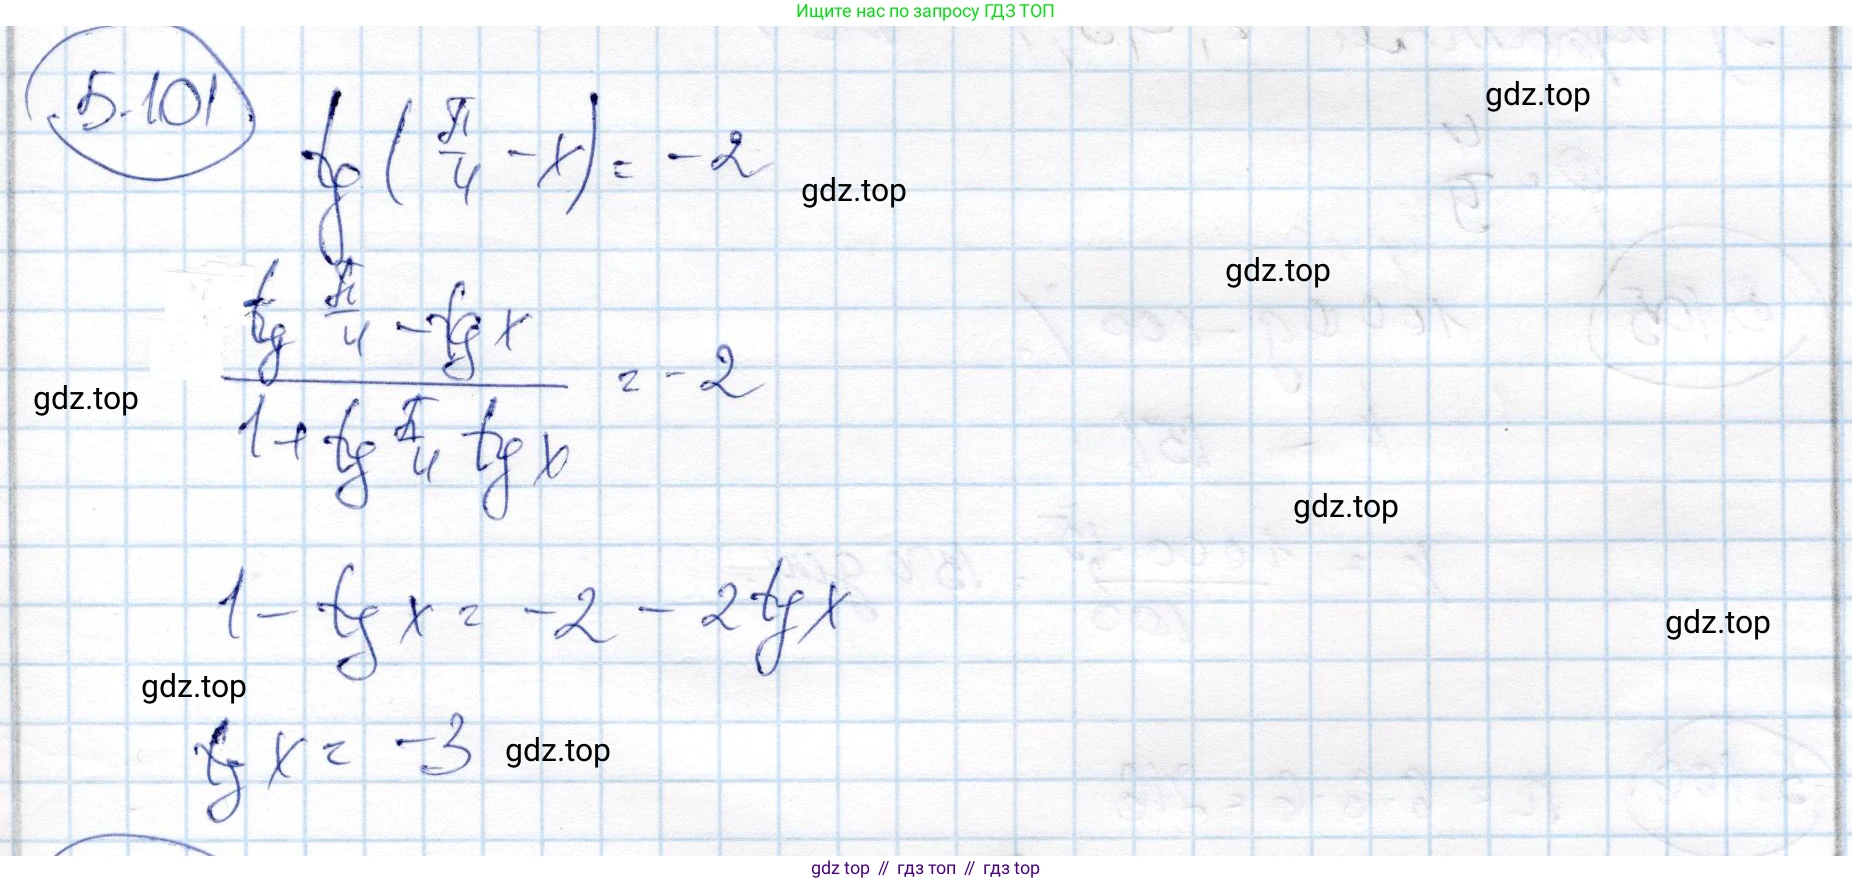 Ищите нас по запросу ГДЗ ТОП
5.101
tg(π/4 - x) = -2
gdz.top
gdz.top
gdz.top
(tg π/4 - tg x)/(1 + tg π/4 tg x) = -2
gdz.top
gdz.top
1 - tg x = -2 - 2 tg x
gdz.top
gdz.top
tg x = -3
gdz.top
gdz top // гдз топ // гдз top